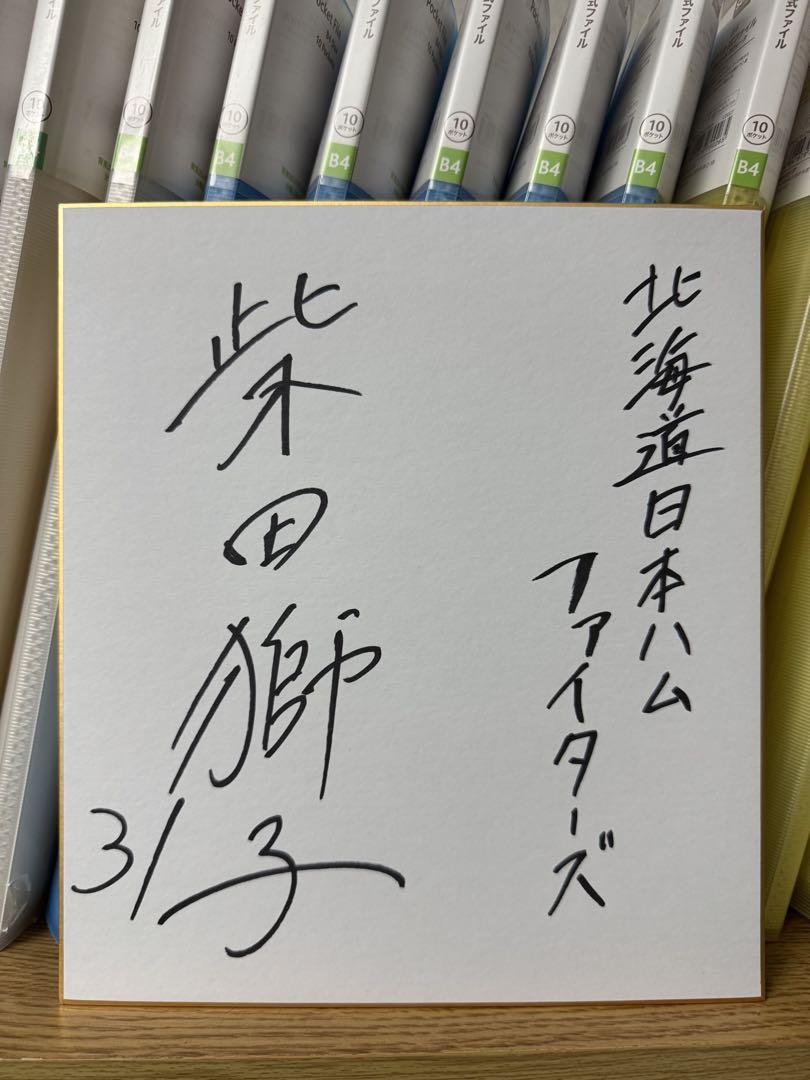 式ファイル
式ファイル
式ファイル
式ファイル
10 ポケット
10 ポケット
10 ポケット
10 ポケット
10 ポケット
10 ポケット
10 ポケット
10 ポケット
B4
B4
B4
B4
B4
B4
北海道日本ハム
ファイターズ
柴田獅子
31